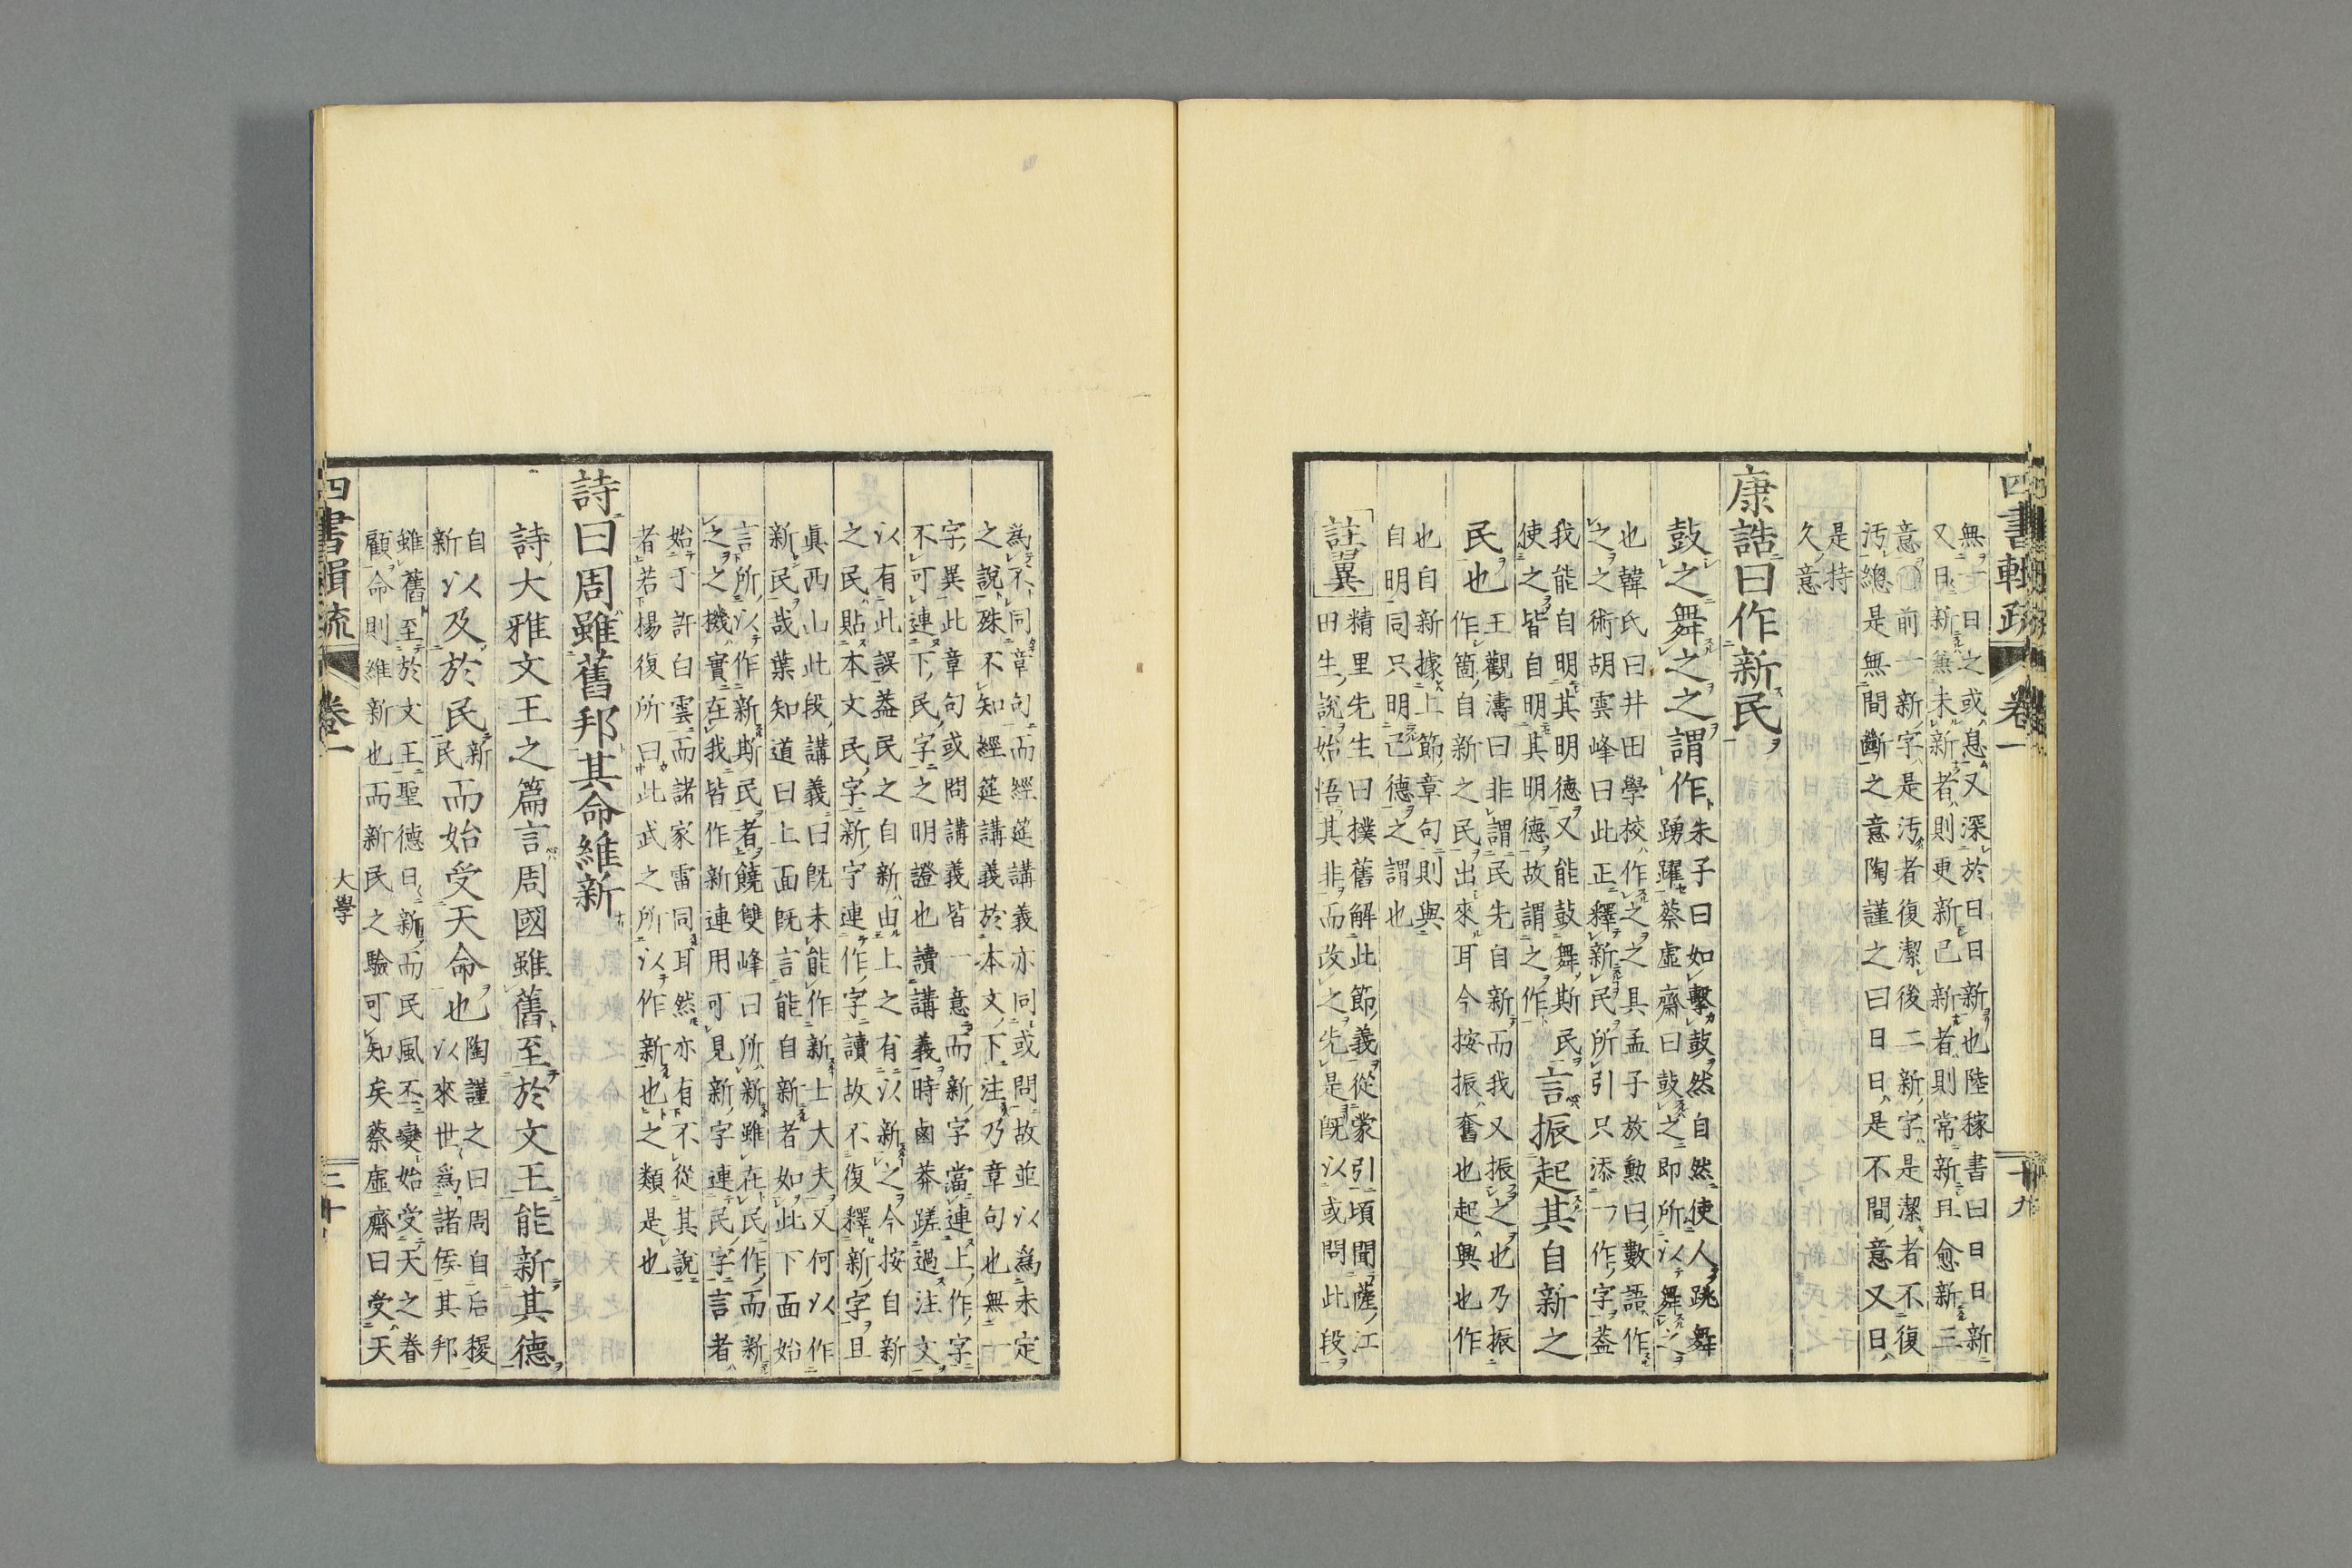 四書輯疏 卷一 十九
無一日之或息又深於日日新也陸稼書曰日日新
又日新蕪未新者則更新已新者則常新且愈新三
意〇前一新字是汚者復潔後二新字是潔者不復
汚總是無間斷之意陶謹之曰日日是不間意又日
是持
久意
康誥曰作新民
鼓之舞之之謂作
朱子曰如擊鼓然自然使人跳舞
踴躍蔡虛齋曰鼓之即所以舞之
也韓氏曰井田學校作之之具孟子放勲曰數語作
之之術胡雲峰曰此正釋新民所引只添一作字葢
我能自明其明德又能鼓舞斯民
使之皆自明其明德故謂之作
言振起其自新之
民也
王觀濤曰非謂民先自新而我又振之也乃振
作箇自新之民出來耳今按振奮也起興也作
也自新據上節章句則與
自明同只明己德之謂也
註異
精里先生曰撲舊解此節義從蒙引頃聞薩江
田生說始悟其非而改之先是旣以或問此段
爲不同章句而經筵講義亦同或問故並以爲未定
之說殊不知經筵講義於本文下注乃章句也無一
字異此章句或問講義皆一意而新字當連上作字
不可連下民字之明證也讀講義時鹵莽蹉過注文
以有此誤葢民之自新由上之有以新之今按自新
之民貼本文民字新字連作字讀故不復釋新字且
眞西山此段講義曰旣未能作新士大夫又何以作
新民哉葉知道曰上面旣言能自新者如此下面始
言所以作新斯民者饒雙峰曰所新雖在民作而新
之之機實在我皆作新連用可見新字連民字言者
始于許白雲而諸家雷同耳然亦有不從其說
者若楊復所曰此武之所以作新也之類是也
詩曰周雖舊邦其命維新
詩大雅文王之篇言周國雖舊至於文王能新其德
自新
以及於民
新民
而始受天命也
陶謹之曰周自后稷
以來世爲諸侯其邦
雖舊至於文王聖德日新而民風丕變始受天之眷
顧命則維新也而新民之驗可知矣蔡虛齋曰受天
四書輯疏 卷一 大學 二十